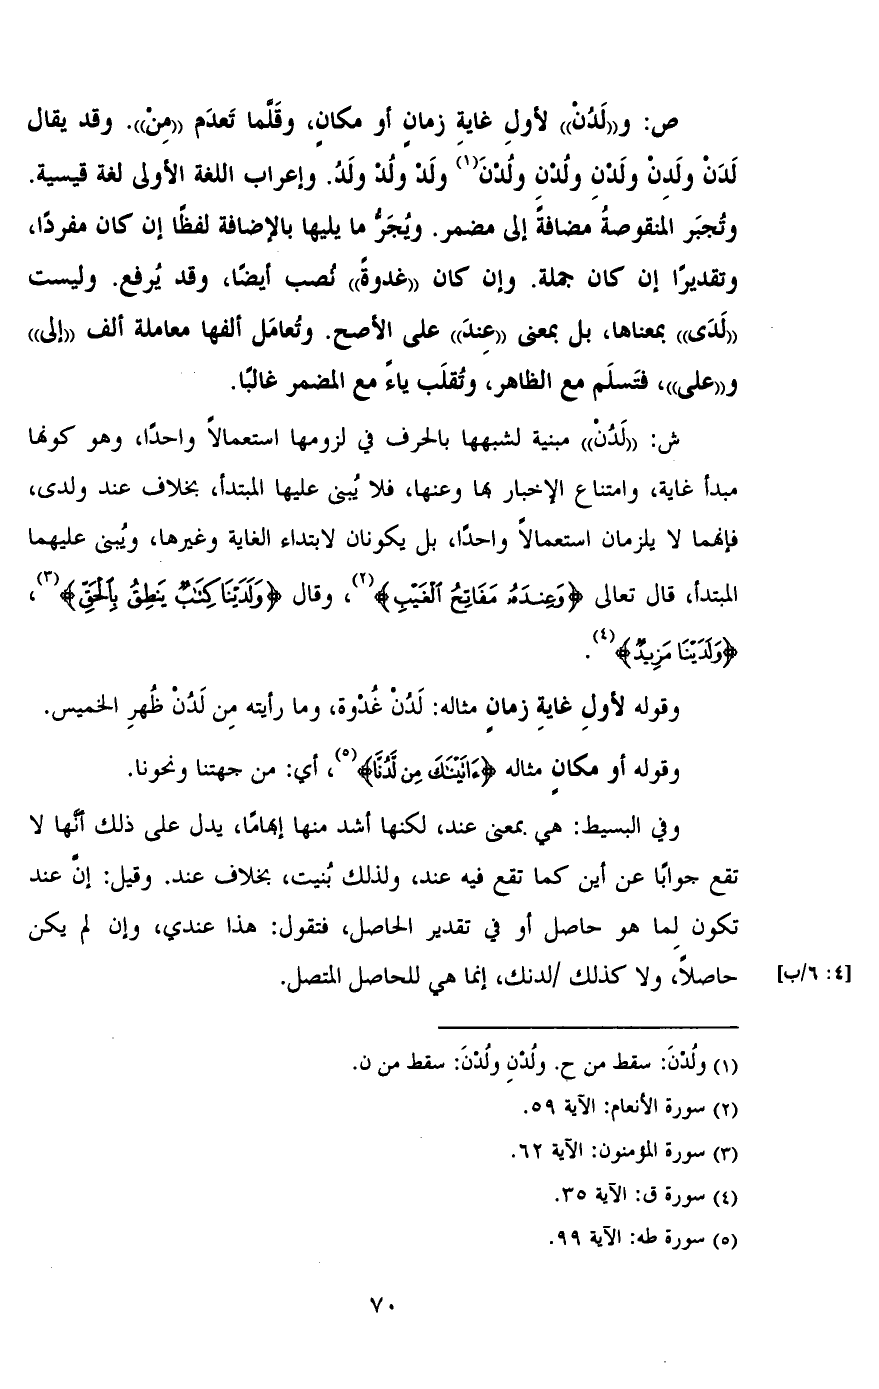 ص: و«لَدُنْ» لأولِ غايةِ زمانٍ أو مكانٍ، وقَلَّما تَعدَم «مِنْ». وقد يقال
لَدَنْ ولَدِنْ ولَدْنِ ولُدْنِ ولُدْنَ(١) ولَدْ ولُدْ ولَدُ. وإعراب اللغة الأولى لغة قيسية.
وتُجبَر المنقوصةُ مضافةً إلى مضمر. ويُجَرُّ ما يليها بالإضافة لفظًا إن كان مفردًا،
وتقديرًا إن كان جملة. وإن كان «غدوةً» نُصب أيضًا، وقد يُرفع. وليست
«لَدَى» بمعناها، بل بمعنى «عِندَ» على الأصح. وتُعامَل ألفها معاملة ألف «إلى»
و«على»، فتَسلَم مع الظاهر، وتُقلَب ياءً مع المضمر غالبًا.
ش: «لَدُنْ» مبنية لشبهها بالحرف في لزومها استعمالاً واحدًا، وهو كونها
مبدأ غاية، وامتناع الإخبار بها وعنها، فلا يُبنى عليها المبتدأ، بخلاف عند ولدى،
فإنهما لا يلزمان استعمالاً واحدًا، بل يكونان لابتداء الغاية وغيرها، ويُبنى عليهما
المبتدأ، قال تعالى ﴿وَعِندَهُۥ مَفَاتِحُ ٱلْغَيْبِ﴾(٢)، وقال ﴿وَلَدَيْنَا كِتَٰبٌ يَنطِقُ بِٱلْحَقِّ﴾(٣)،
﴿وَلَدَيْنَا مَزِيدٌ﴾(٤).
وقوله لأولِ غايةِ زمانٍ مثاله: لَدُنْ غُدْوة، وما رأيته مِن لَدُنْ ظُهرِ الخميس.
وقوله أو مكانٍ مثاله ﴿ءَاتَيْنَٰكَ مِن لَّدُنَّا﴾(٥)، أي: من جهتنا ونحونا.
وفي البسيط: هي بمعنى عند، لكنها أشد منها إبهامًا، يدل على ذلك أنَّها لا
تقع جوابًا عن أين كما تقع فيه عند، ولذلك بُنيت، بخلاف عند. وقيل: إنَّ عند
تكون لِما هو حاصل أو في تقدير الحاصل، فتقول: هذا عندي، وإن لم يكن
حاصلاً، ولا كذلك /لدنك، إنما هي للحاصل المتصل.
[٤: ٦/ب]
(١) ولُدْنَ: سقط من ح. ولُدْنِ ولُدْنَ: سقط من ن.
(٢) سورة الأنعام: الآية ٥٩.
(٣) سورة المؤمنون: الآية ٦٢.
(٤) سورة ق: الآية ٣٥.
(٥) سورة طه: الآية ٩٩.
٧٠